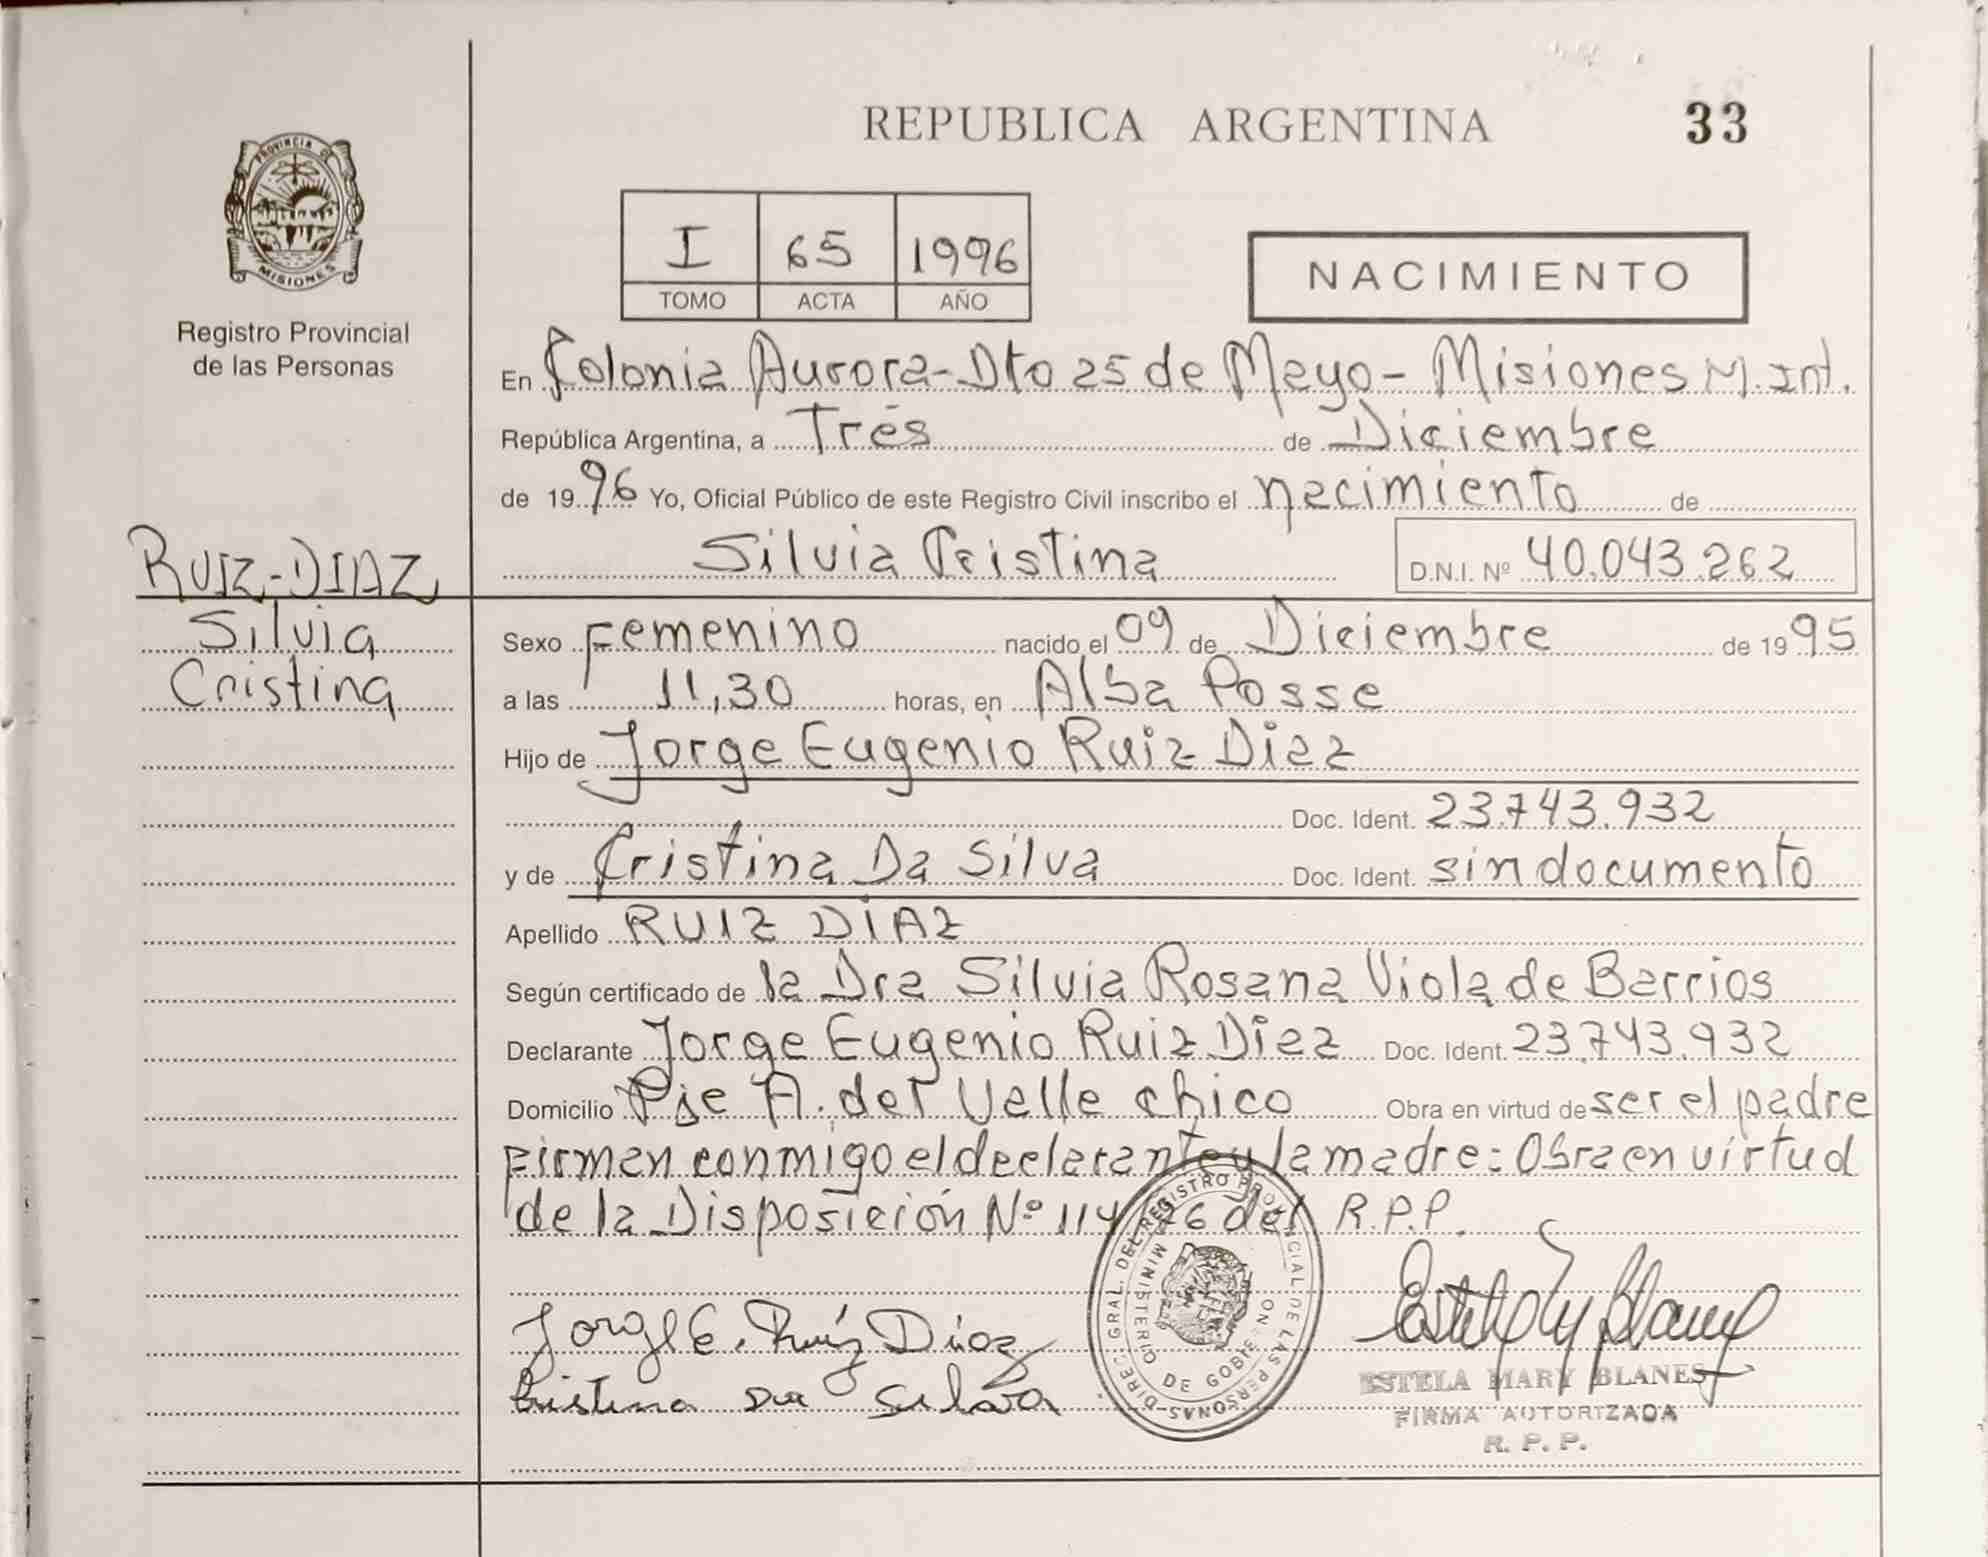 REPUBLICA ARGENTINA
33
PROVINCIA DE
MISIONES
Registro Provincial
de las Personas
I 65 1996
TOMO ACTA AÑO
NACIMIENTO
En Colonia Aurora - Dto 25 de Mayo - Misiones M. Int.
República Argentina, a Tres de Diciembre
de 1996 Yo, Oficial Público de este Registro Civil inscribo el nacimiento de
Silvia Cristina D.N.I. Nº 40.043.262
RUIZ-DIAZ
Silvia
Cristina
Sexo Femenino nacido el 09 de Diciembre de 1995
a las 11,30 horas, en Alba Posse
Hijo de Jorge Eugenio Ruiz Diaz
Doc. Ident. 23.743.932
y de Cristina Da Silva Doc. Ident. sin documento
Apellido RUIZ DIAZ
Según certificado de la Dra Silvia Rosana Viola de Barrios
Declarante Jorge Eugenio Ruiz Diaz Doc. Ident. 23.743.932
Domicilio Pje A. del Valle chico Obra en virtud de ser el padre
Firman conmigo el declarante y la madre: Obra en virtud
de la Disposición Nº 114/76 del R.P.P.
Jorge E. Ruíz Díaz
Cristina da silva
DIREC. GRAL. DEL REGISTRO PROVINCIAL DE LAS PERSONAS
MINISTERIO DE GOBIERNO
ESTELA MARY BLANES
FIRMA AUTORIZADA
R. P. P.